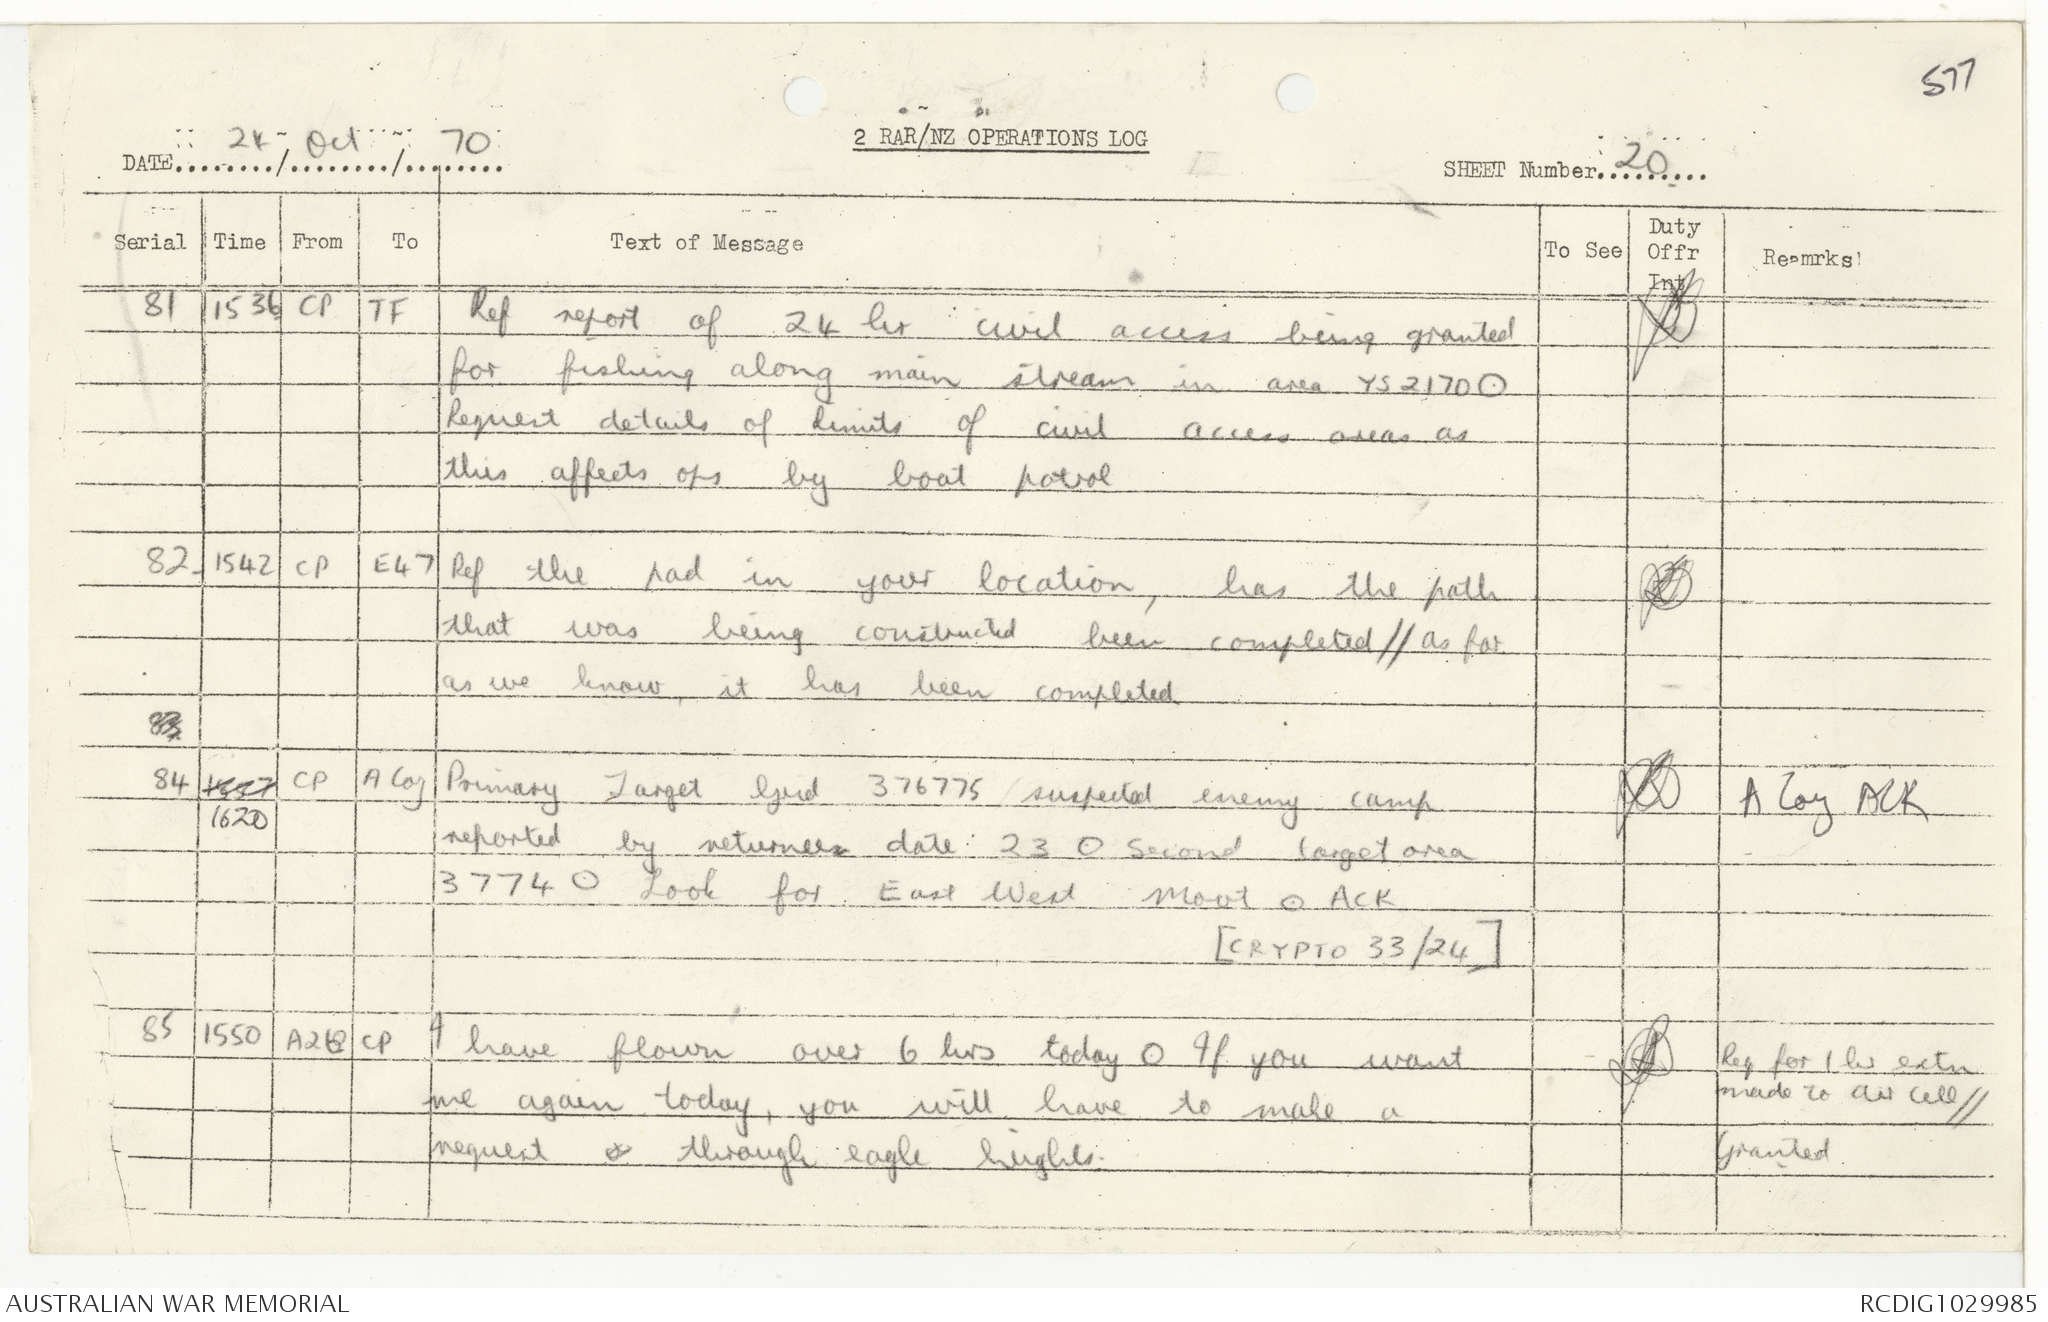 577
DATE 24 / Oct / 70
2 RAR/NZ OPERATIONS LOG
SHEET Number 20
Serial Time From To Text of Message To See Duty Offr Int Reamrks
81 1536 CP TF Ref report of 24 hr civil access being granted
for fishing along main stream in area YS2170 O
Request details of limits of civil access areas as
this affects ops by boat patrol
82 1542 CP E47 Ref the pad in your location, has the path
that was being constructed been completed // as far
as we know, it has been completed
83
84 1557 CP A Coy Primary Target Grid 376775 suspected enemy camp A Coy ACK
1620 reported by returnee date: 23 O Second target area
3774 O Look for East West Movt O ACK
[CRYPTO 33/24]
85 1550 CP I have flown over 6 hrs today O If you want Req for 1 hr extn
me again today, you will have to make a made to air cell //
request through eagle heights. granted
AUSTRALIAN WAR MEMORIAL
RCDIG1029985